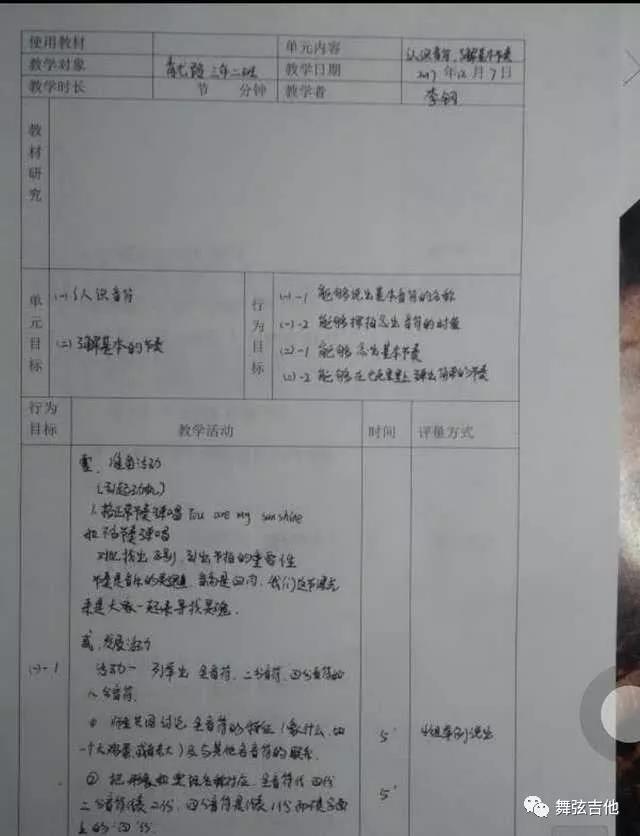 使用教材 单元内容 认识音符、了解基本节奏
教学对象 三年二班 教学日期 2017年12月7日
教学时长 节 分钟 教学者 李钢
教材研究
单元目标
(一) 认识音符
(二) 了解基本的节奏
行为目标
(一)-1 能够说出基本音符的名称
(一)-2 能够择拍念出音符的时值
(二)-1 能够念出基本节奏
(二)-2 能够在尤克里里上弹出简单的节奏
行为目标 教学活动 时间 评量方式
壹、准备活动
(引起动机)
1.按正常节奏弹唱 You are my sunshine
和不带节奏弹唱
对比找出区别,引出节拍的重要性
节奏是音乐的灵魂,音高是血肉,我们这节课
来是大家一起来寻找灵魂。
贰、发展活动
(一)-1 活动一 列举出 全音符、二分音符、四分音符
八分音符。
① 师生共同讨论 全音符的特征(像什么,如
一个大鸡蛋) 及与其他各音符的联系 5' 4组举例说出
② 把 全音符 四份
二分音符代表二份,四分音符代表1份 5'
舞弦吉他